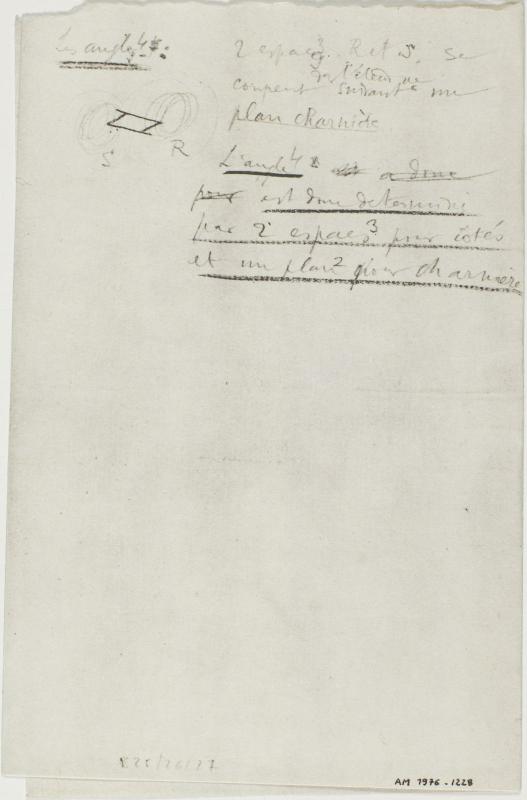 Les angles 4 :
2 espaces3. R et S. se
ds l'étendue
coupent suivant un
plan charnière
S R
L'angle 4 est a donc
pour est donc déterminé
par 2 espaces3 pour cotés
et un plan2 pour charnière
25/26/27
AM 1976-1228